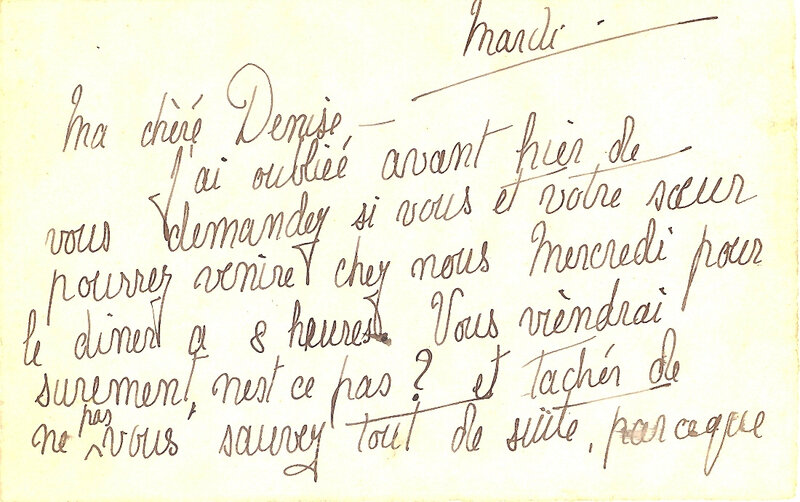 Mardi.
Ma chèré Denise, —
J'ai oublieé avant hier de
vous demandez si vous et votre sœur
pourrez veniret chez nous Mercredi pour
le diner a 8 heures. Vous vièndrai
surement, nest ce pas ? et tachér de
ne pas vous sauvez tout de suite, parceque